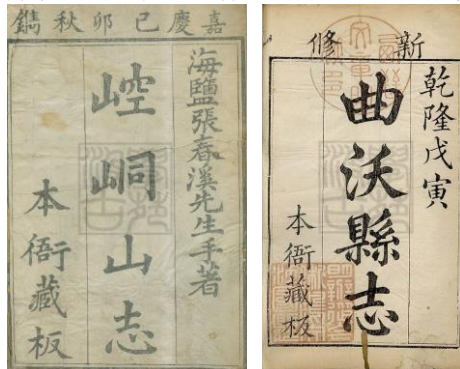 嘉慶己卯秋鐫
海鹽張春溪先生手著
崆峒山志
本衙藏板
新修
乾隆戊寅
曲沃縣志
本衙藏板